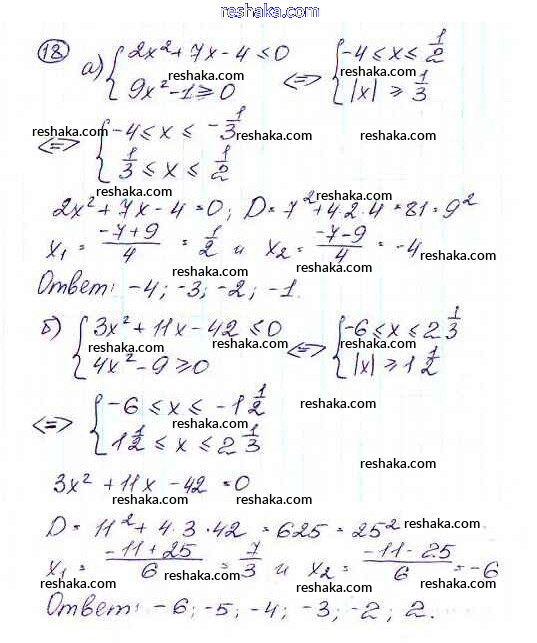 www.reshaka.com
reshaka.com
18
а) { 2x² + 7x - 4 ≤ 0
9x² - 1 ≥ 0
reshaka.com
⟺ { -4 ≤ x ≤ 1/2
|x| ≥ 1/3
reshaka.com
reshaka.com
⟺ { -4 ≤ x ≤ -1/3
1/3 ≤ x ≤ 1/2
reshaka.com
reshaka.com
reshaka.com
2x² + 7x - 4 = 0; D = 7² + 4·2·4 = 81 = 9²
reshaka.com
reshaka.com
x₁ = (-7+9)/4 = 1/2 и x₂ = (-7-9)/4 = -4
reshaka.com
reshaka.com
Ответ: -4; -3; -2; -1.
reshaka.com
б) { 3x² + 11x - 42 ≤ 0
4x² - 9 ≥ 0
reshaka.com
⟺ { -6 ≤ x ≤ 2 1/3
|x| ≥ 1 1/2
reshaka.com
reshaka.com
⟺ { -6 ≤ x ≤ -1 1/2
1 1/2 ≤ x ≤ 2 1/3
reshaka.com
reshaka.com
3x² + 11x - 42 = 0
reshaka.com
reshaka.com
reshaka.com
D = 11² + 4·3·42 = 625 = 25²
reshaka.com
x₁ = (-11+25)/6 = 7/3 и x₂ = (-11-25)/6 = -6
reshaka.com
reshaka.com
reshaka.com
Ответ: -6; -5; -4; -3; -2; 2.
reshaka.com
reshaka.com